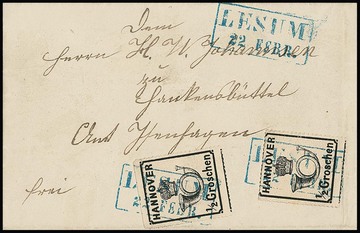 LESUM
22 FEBR.
Dem
Herrn H. W. Johannsen
zu
Hankensbüttel
Amt Isenhagen
frei
HANNOVER
½ Groschen.
HANNOVER
½ Groschen.
FEBR.